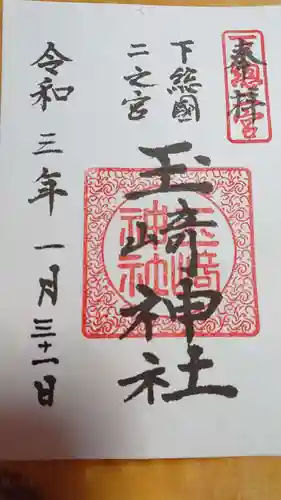 奉拝
下総國
二之宮
玉崎神社
玉崎
神社
令和三年一月三十一日